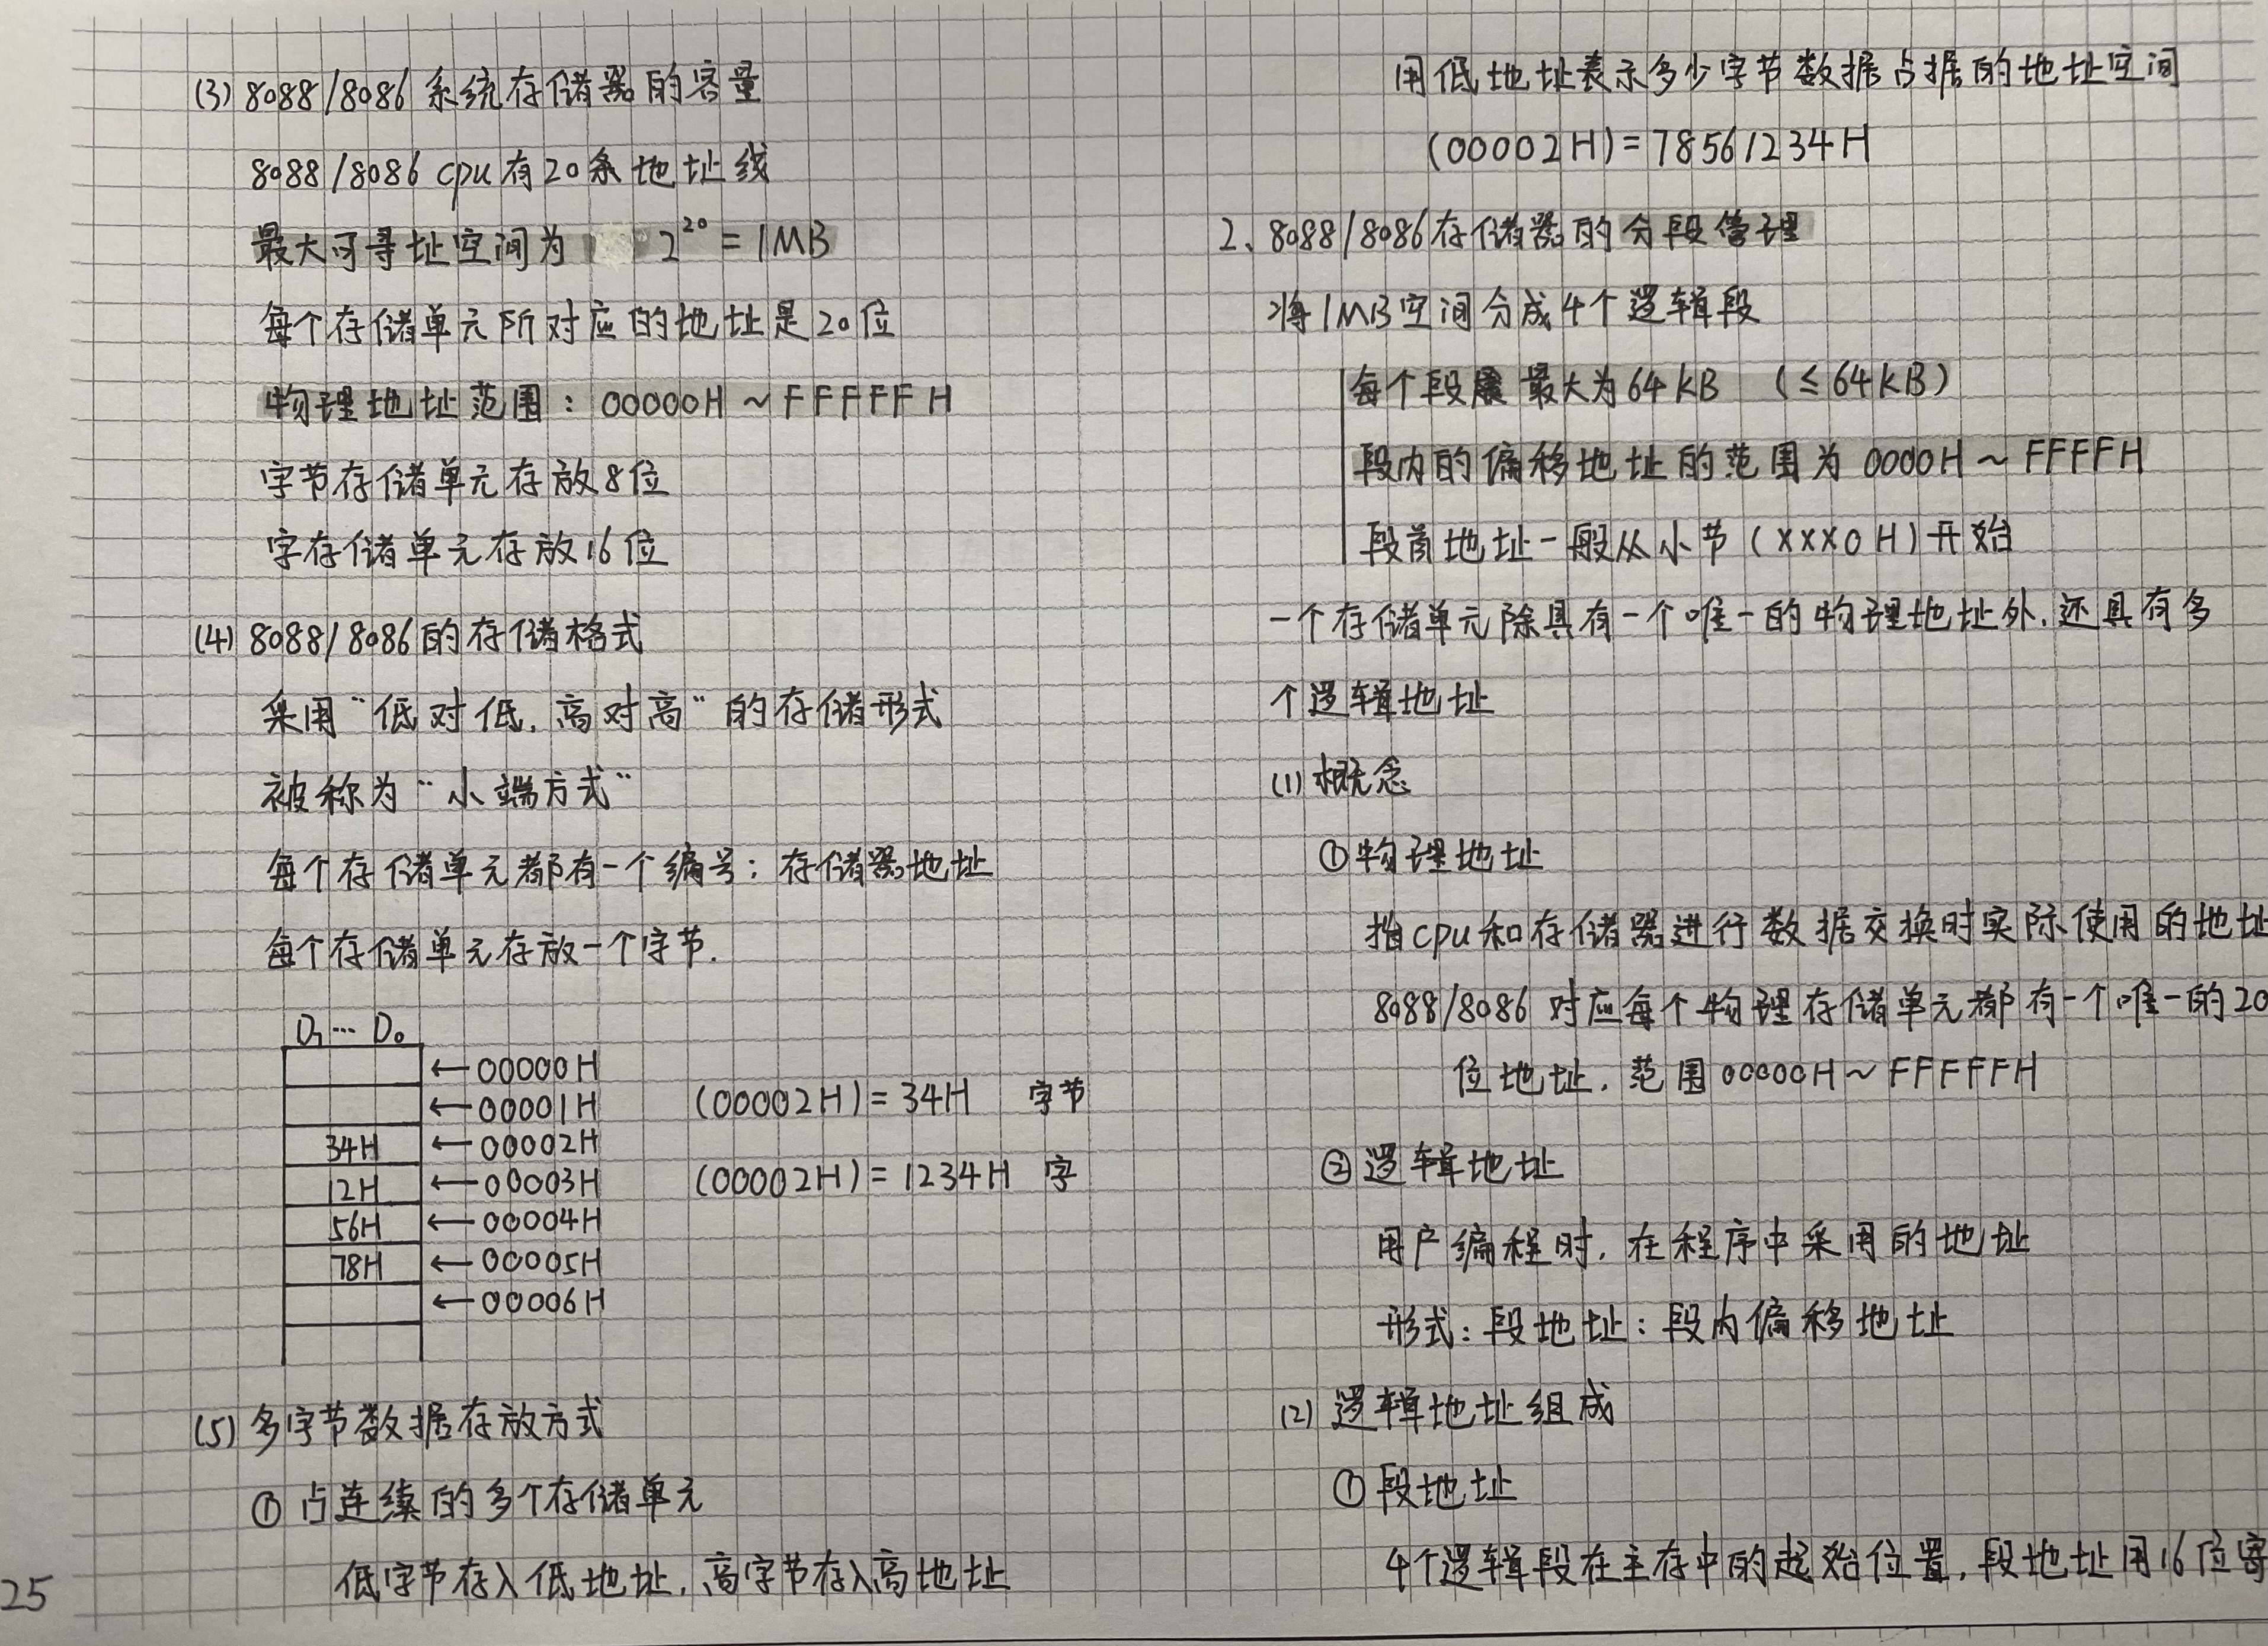 (3) 8088/8086 系统存储器的容量
8088/8086 cpu有20条地址线
最大可寻址空间为 2²⁰ = 1MB
每个存储单元所对应的地址是20位
物理地址范围：00000H ~ FFFFFH
字节存储单元存放8位
字存储单元存放16位
(4) 8088/8086的存储格式
采用“低对低，高对高”的存储形式
被称为“小端方式”
每个存储单元都有一个编号：存储器地址
每个存储单元存放一个字节.
D₇ … D₀
←00000H
←00001H
(00002H) = 34H 字节
34H ←00002H
12H ←00003H
(00002H) = 1234H 字
56H ←00004H
78H ←00005H
←00006H
(5) 多字节数据存放方式
① 占连续的多个存储单元
低字节存入低地址，高字节存入高地址
25
用低地址表示多少字节数据占据的地址空间
(00002H) = 78561234H
2、8088/8086存储器的分段管理
将1MB空间分成4个逻辑段
每个段 最大为64KB (≤64KB)
段内的偏移地址的范围为 0000H ~ FFFFH
段首地址一般从小节(XXX0H)开始
一个存储单元除具有一个唯一的物理地址外，还具有多
个逻辑地址
(1) 概念
① 物理地址
指cpu和存储器进行数据交换时实际使用的地址
8088/8086 对应每个物理存储单元都有一个唯一的20
位地址，范围00000H ~ FFFFFH
② 逻辑地址
用户编程时，在程序中采用的地址
形式：段地址：段内偏移地址
(2) 逻辑地址组成
① 段地址
4个逻辑段在主存中的起始位置，段地址用16位寄